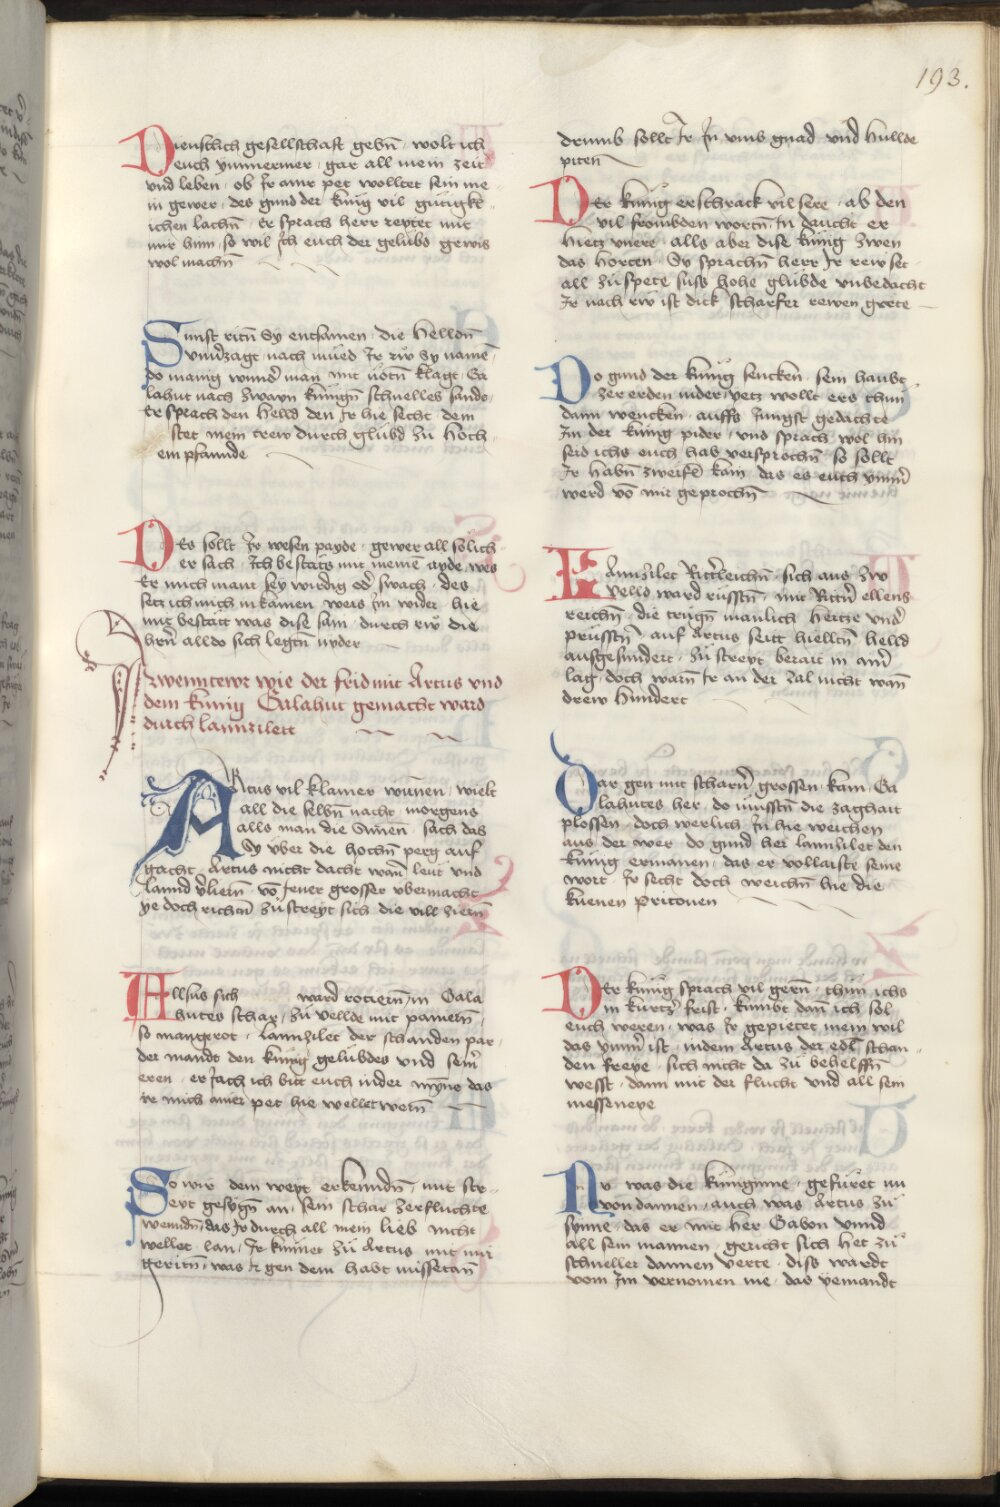 193.
Dienstlich gesellschaft gebn̄ · wolt ich
euch ymmermer · gar all mein zeit
vnd leben · ob Ir amr pet wolltet sein me-
in gewer · des gund der künig vil gütigk-
ichen lachn̄ · Er sprach herr reytet mit
mir hinn · so wil Ich euch der gelübs gewis
wol machn̄
Sunst ritn̄ Sy entsamen · die Helldn̄
vnuerzagt · nach müed Ir rẘ Sy namē ·
do manig wund̄ man mit nötn̄ klagt · Ga
lahut nach zwayn künign̄ schnelles sandt
Er sprach den Helld den Ir hie secht · dem
stet mein trew durch glübd zu Hoch
em pfannde
DEs sollt Ir wesen payde · gewer all solich
er sach · Ich bestäts mit meinē ayde · wes
Er mich mant sey wirdig od̄ swach · des
setz ich mich in kainen weis Im wider · hie
mit bestätt was dise sam · durch rẘ die
hrn̄ alldo sich legtn̄ nyder
Awenntewr wie der frid mit Artus vnd
dem künig Galahut gemacht ward
durch lannzilett
ARtus vil klainer wūnen · wielt
all die selbn̄ nacht · morgens
alls man die Sūnen · sach das
Sy vber die hochn̄ perg auf
gacht · Artus nicht dacht wan̄ leut vnd
lannd v̄liern̄ · vō Jener grosser vbermacht
ye doch richtn̄ zu streyt sich die vill ziern̄
Allsus sich ward rotiern̄ in Gala
hutes schar · zu vellde mit panern̄ ·
so mangrot · Lannzilet der schanden par ·
der mandt den künig gelübdes vnd seinr̄
eren · er Jach ich bitt euch in der mȳne das
ir mich ainer pet hie wellet wern̄
So wir dem weyt erkenndn̄ · mit str-
eyt gesign̄ an · sein schar zerfluchte
wenndn̄ · das Ir durch all mein lieb nicht
wellet lan · Ir kummet zu Artus mit mir
geritn̄ · was Ir gen dem habt missetan̄
drumb sollt Ir In vmb gnad vnd hullde
piten
DEr künig erschrack vil sere · ab den
vil frombden wortn̄ · In daucht er
hietz vnere · alls aber dise künig zwen
das horten · Sy sprachn̄ herr Ir rew set
all zu spete · suss hohe glübde vnbedacht
Ir nach rw ist dick scharfer rewen grete
Do gund der künig sencken · sein haubt
zer erden nider · yetz wollt ers thun
dann wencken · auffs Jungst gedachte
Im der künig pider · vnd sprach wol hin
seid ichs euch hab versprochn̄ so sollt
Ir habn̄ zweifel kain das es euch ymmr̄
werd vō mir geprochn̄
LAnnzilet Rittr̄leichn̄ · sich aus zw
velld ward rüsstn̄ · mit Rittr̄ ellens
reichn̄ · die trugn̄ manlich hertze vnd̄
prüsstn̄ · auf Artus seitt hielltn̄ helld
ausgesundert · zu streyt berait in ainr̄
lag · doch warn̄ Ir an der zal nicht wan̄
drew hundert
Dar gen mit scharn̄ grossen · kam · Ga
lahutes her · do müsstn̄ die zaghait
plossen · doch werlich In hie weichen
aus der wer · do gund her lannzilet den
künig ermanen · das er vollaiste seine
wort · Ir secht doch weichn̄ hie die
küenen Pritonen
DEr künig sprach vil gern̄ · thun ichs
in kurtzr̄ frist · kumbt dan̄ ich sol
euch weren · was Ir gepietet mein wil
das ymmr̄ ist · indem Artus der edl̄ schan-
den freye · sich nicht da zu behelffn̄
wesst · dann mit der flucht vnd all sein
messeneye
Nv was die küniginne · gefüret nu
von dannen · auch was Artus zu
synne · das er mit her Gabon vnnd
all sein mannen · gericht sich het zu
schneller dannen verte · diss wardt
vom Im vernomen nie · das yemandt